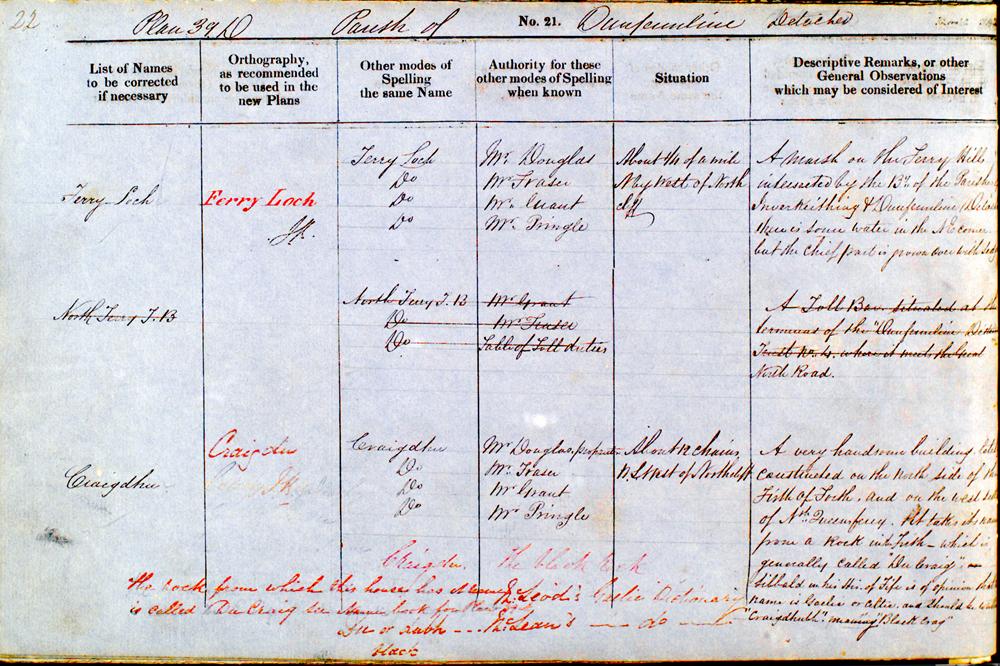 22
Plan 39 D Parish of No. 21. Dunfermline Detached
List of Names
to be corrected
if necessary
Orthography,
as recommended
to be used in the
new Plans
Other modes of
Spelling
the same Name
Authority for these
other modes of Spelling
when known
Situation
Descriptive Remarks, or other
General Observations
which may be considered of Interest
Ferry Loch
Ferry Loch
Ferry Loch
Do
Do
Do
Mr. Douglas
Mr. Fraser
Mr. Grant
Mr. Pringle
About ¼ of a mile
N by West of North
A Marsh on the Ferry Hills
intersected by the of the Parishes
Inverkeithing & Dunfermline
there is some water in the N.E. corner
but the chief part is grown over with
North Ferry T.B
North Ferry T.B
Do
Do
Mr. Grant
Mr. Fraser
Table of Toll duties
A Toll Bar, situated at the
terminus of the "Dunfermline
Trust No. 4. where it meets the Great
North Road.
Craigdhu
Craigdu
Craigdhu
Do
Do
Do
Mr. Douglas, proprietor
Mr. Fraser
Mr. Grant
Mr. Pringle
About 12 chains
A very handsome building,
constructed on the North side of the
Firth of Forth, and on the west
of Nth. Queensferry. It takes its name
from a Rock in Firth - which is
generally called Du Craig" -
Sibbald in his His. of Fife is of opinion
name is Gaelic or Celtic, and should be
"Craigdhuth" meaning "Black Crag"
Craigdu. The black rock
The Rock from which this house has its name
is called Du Craig
McLeod's Gaelic Dictionary
Du or Dubh --- McLean's --- do ---
black